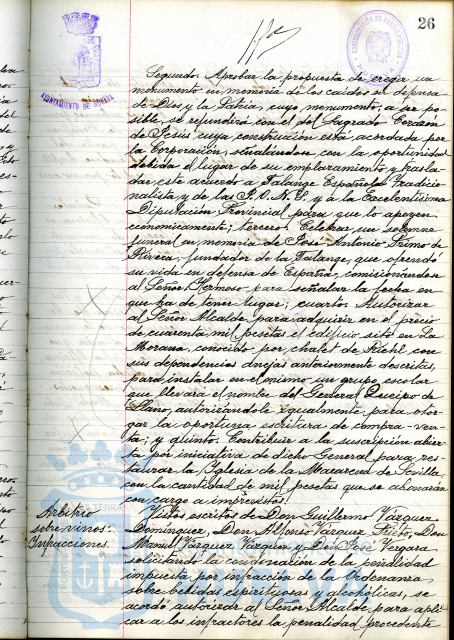 26
AYUNTAMIENTO DE HUELVA
Segundo. Aprobar la propuesta de eregir un
monumento en memoria de los caidos en defensa
de Dios y la Patria, cuyo monumento, a ser po
sible, se refundirá con el del Sagrado Corazón
de Jesus cuya construcción está acordada por
la Corporación, señalandose con la oportunidad
debida el lugar de su emplazamiento, y trasla-
dar este acuerdo a Falange Española Tradicio-
nalista y de las J.O.N.S. y á la Excelentísima
Diputación Provincial para que lo apoyen
económicamente; tercero. Celebrar un solemne
funeral en memoria de José Antonio Primo de
Rivera, fundador de la Falange, que ofrendó
su vida en defensa de España, comisionandose
al Señor Hermoso para señalar la fecha en
que ha de tener lugar; cuarto. Autorizar
al Señor Alcalde para adquirir en el precio
de cuarenta mil pesetas el edificio sito en La
Morana, conocido por chalet de Riehl con
sus dependencias anejas anteriormente descritas,
para instalar en el mismo un grupo escolar
que llevará el nombre del General Queipo de
Llano, autorizándole igualmente para otor-
gar la oportuna escritura de compra-ven-
ta; y quinto. Contribuir a la suscripción abier
ta por iniciativa de dicho General para res
taurar la Iglesia de la Macarena de Sevilla
con la cantidad de mil pesetas que se abonarán
con cargo a imprevistos.
Arbitrio
sobre vinos.
Infracciones.
Vistos escritos de Don Guillermo Vázquez
Dominguez, Don Alfonso Vázquez Prieto, Don
Manuel Vázquez Vazquez y Don José Vergara
solicitando la condonación de la penalidad
impuesta por infracción de la Ordenanza
sobre bebidas espirituosas y alcohólicas, se
acordó autorizar al Señor Alcalde para apli
car a los infractores la penalidad procedente